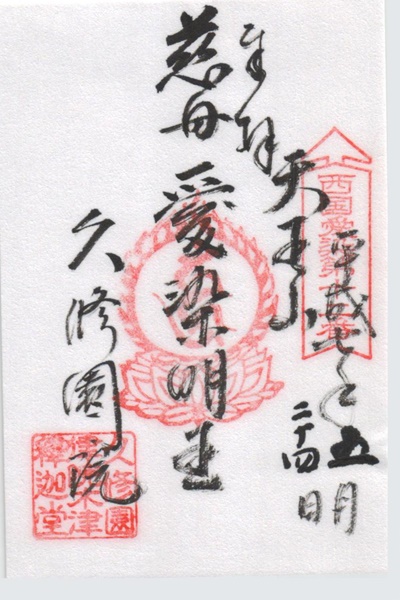 平成七年五月
二十四日
奉拝 天王山
慈母 愛染明王
久修園院
西国愛染
久修園
木津
釋迦堂